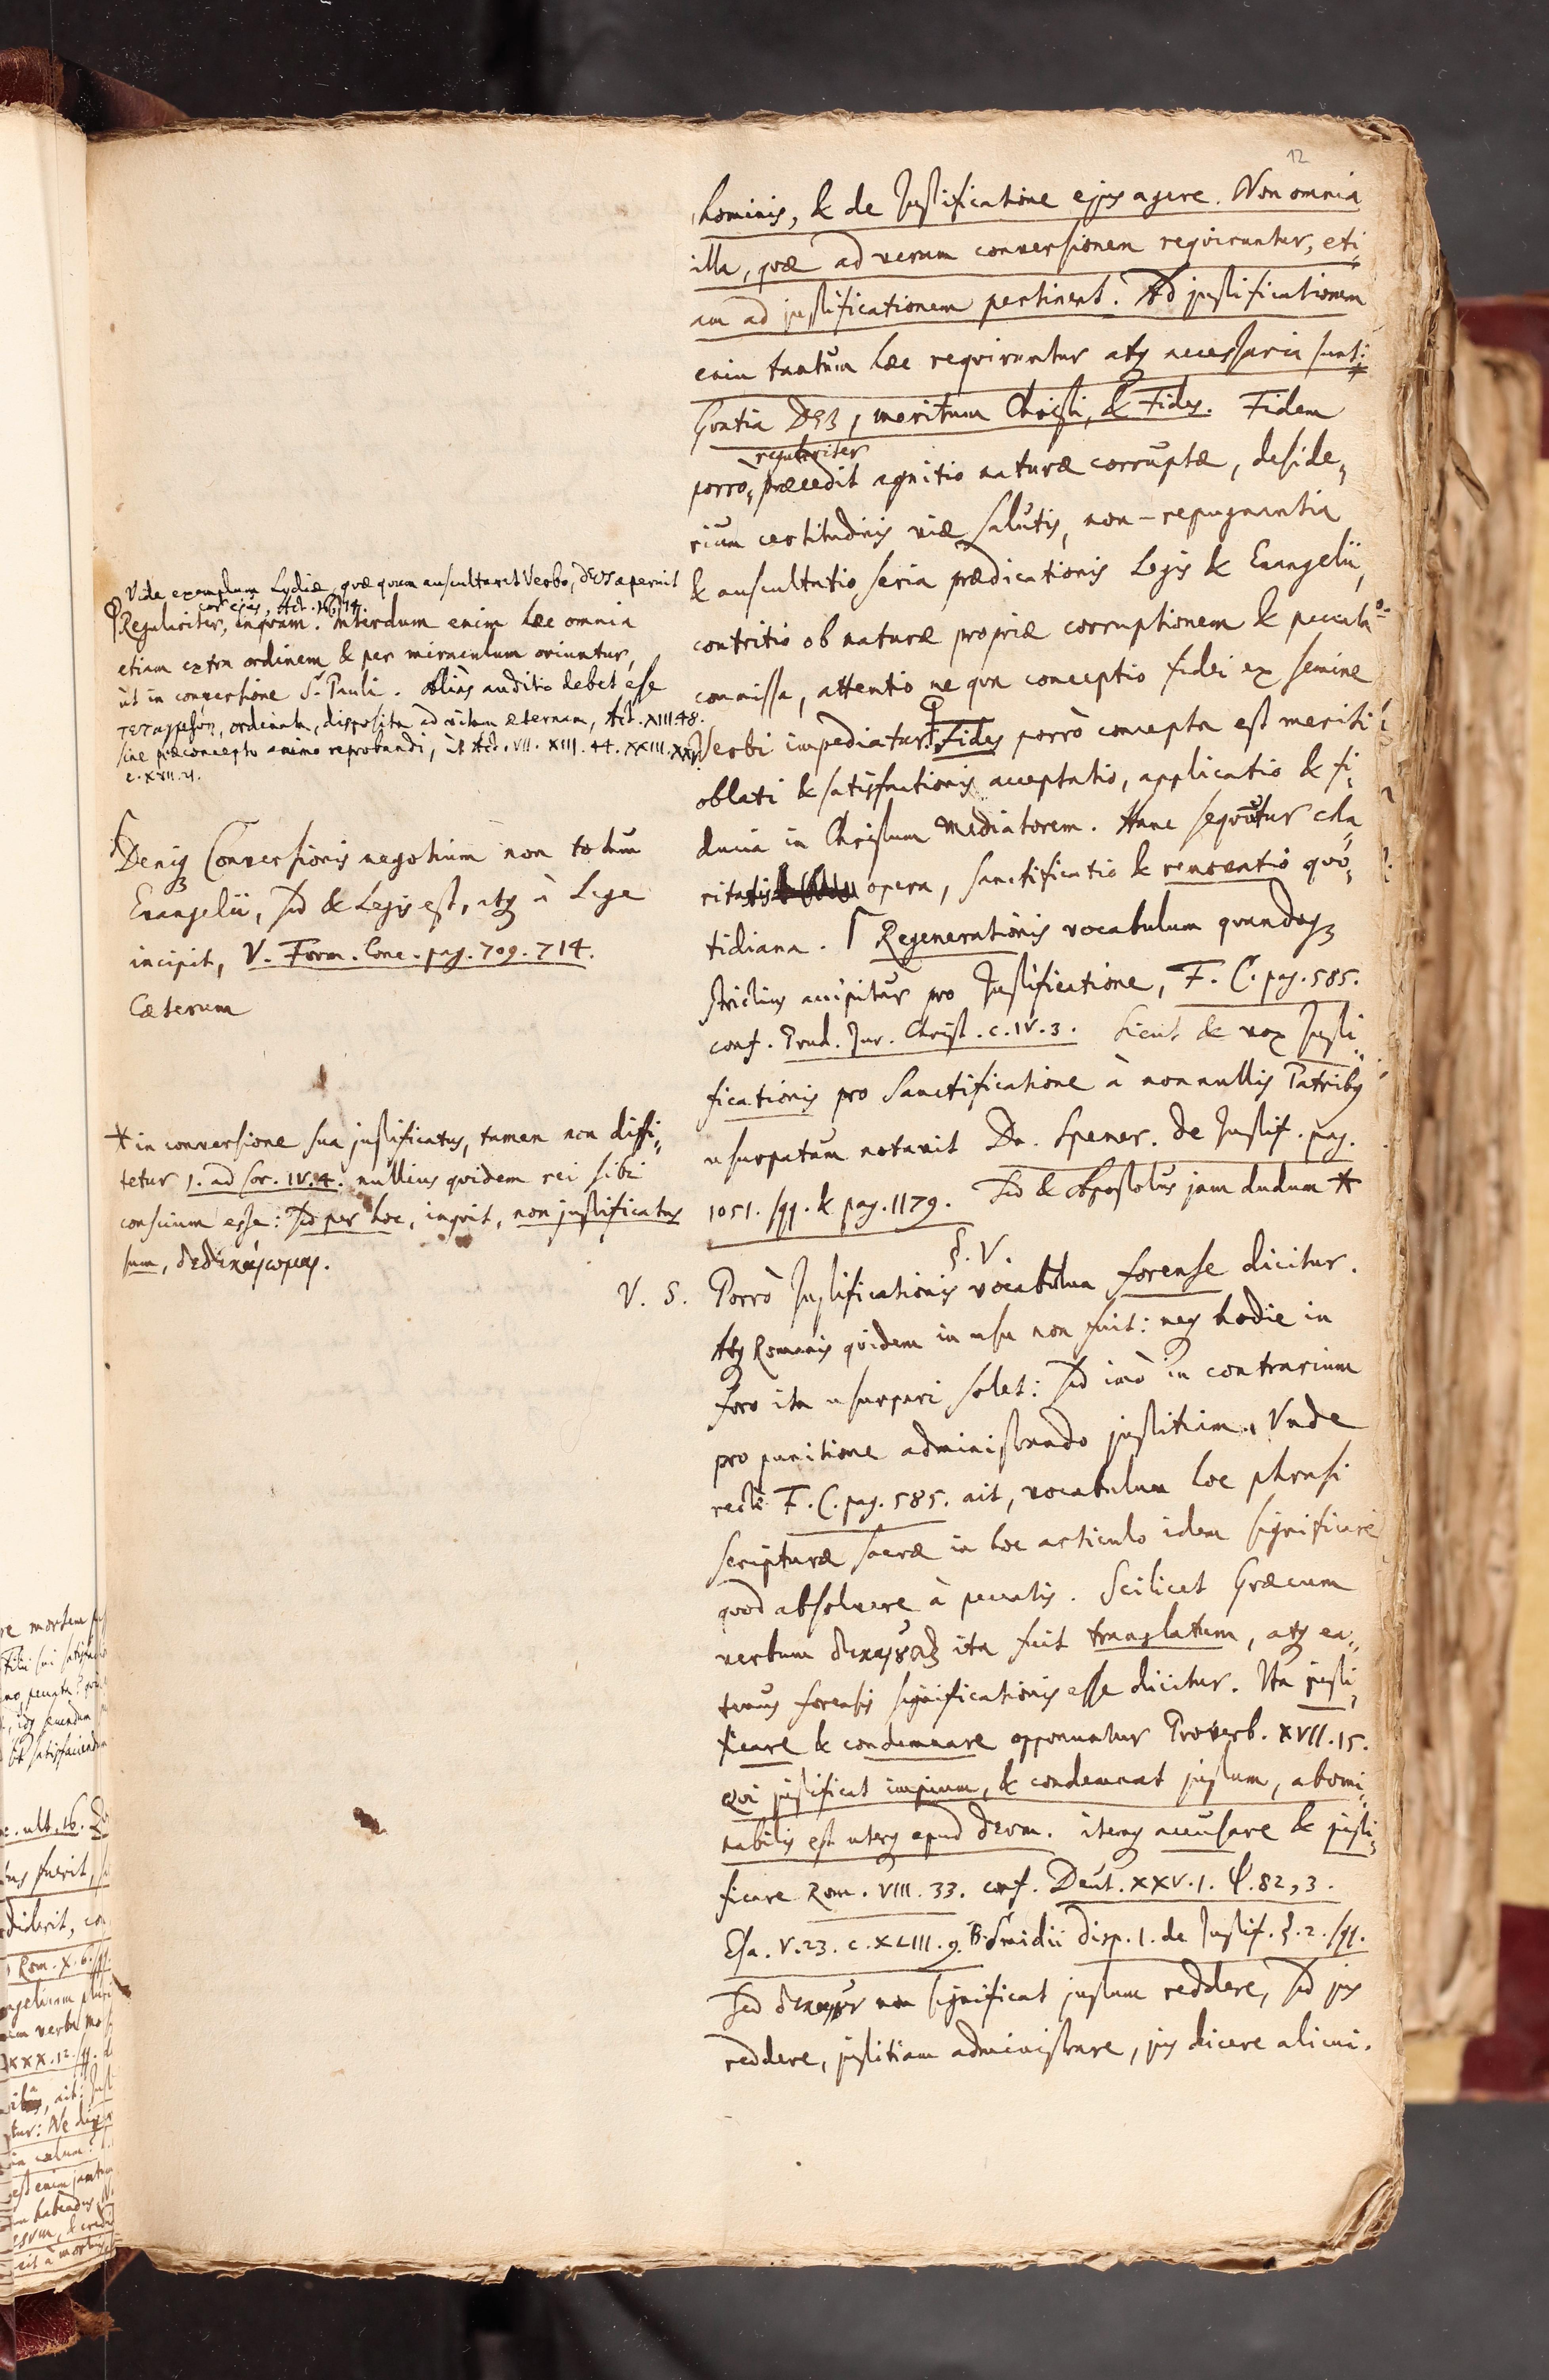 12
hominis, & de Justificatione ejus agere. Non omnia
illa, quæ ad veram conversionem requiruntur, eti,
am ad justificationem pertinent. Ad justificationem
enim tantum hæc requiruntur atq; necessaria sunt:
Gratia DEI, meritum Christi, & Fides. Fidem
regulariter
porro, præcedit agnitio naturæ corruptæ, deside,
rium certitudinis viæ salutis, non-repugnantia
& auscultatio seria prædicationis Legis & Euangelii,
contritio ob naturæ propriæ corruptionem & peccata
commissa, attentio ne qua conceptio fidei ex semine
Verbi impediatur. Fides porrò concepta est meriti
oblati & satisfactionis acceptatio, applicatio & fi,
ducia in Christum Mediatorem. Hanc sequuntur cha,
ritatis opera, sanctificatio & renovatio quo,
tidiana. Regenerationis vocabulum quandoq;
strictius accipitur pro Justificatione, F. C. pag. 585.
conf. Prud. Jur. Christ. c. IV. 3. Sicut & vox Justi,
ficationis pro Sanctificatione à nonnullis Patribus
usurpatum notavit Dn. Spener. de Justif. pag.
1051. sqq. & pag. 1179. Sed & Apostolus jam dudum *
§. V.
V. S. Porrò Justificationis vocabulum forense dicitur.
Atq; Romanis quidem in usu non fuit: neq; hodie in
foro ita usurpari solet: sed imò in contrarium
pro punitione administrando justitiam. Unde
rectè F. C. pag. 585. ait, vocabulum hoc phrasi
scripturæ sacræ in hoc articulo idem significare
quod absolvere à peccatis. Scilicet Græcum
verbum δικαιȣ͂ϑ ita fuit translatum, atq; ea,
tenus forensis significationis esse dicitur. Ita justi,
ficare & condemnare opponuntur Proverb. XVII. 15.
Qui justificat impium, & condemnat justum, abomi,
nabilis est uterq; apud Deum. itemq; accusare & justi,
ficare Rom. VIII. 33. conf. Deut. XXV. 1. Ψ. 82, 3.
Esa. V. 23. c. XLIII. 9. B. Smidii disp. 1. de Justif. §. 2. sqq.
Sed δικαιȣν non significat justum reddere, sed jus
reddere, justitiam administrare, jus dicere alicui.
Vide exemplum Lydiæ, quæ quum auscultaret Verbo, DEUS aperuit
cor ejus, Act. 16, 14.
Regulariter, inquam. Interdum enim hæc omnia
etiam extra ordinem & per miraculum oriuntur,
ut in conversione S. Pauli. Aliàs auditio debet esse
ordinata, disposita ad vitam æternam, Act. XIII. 48.
sine præconcepto animo reprobandi, ut Act. VII. XIII. 44. XXIII. XXV.
c. XVII. 21.
Deniq; Conversionis negotium non totum
Euangelii, sed & Legis est, atq; à Lege
incipit, V. Form. Conc. pag. 709. 714.
Cæterum
* in conversione sua justificatus, tamen non diffi,
tetur 1. ad Cor. IV. 4. nullius quidem rei sibi
conscium esse: sed per hoc, inquit, non justificatus
sum, δεδικαίωμαι.